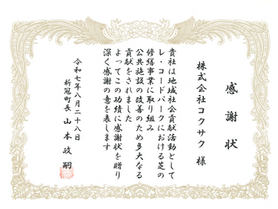 感謝状
株式会社コクサク 様
貴社は地域社会貢献活動として
レ・コードパークにおける芝の
修繕事業に取り組み
公共施設の改善のため多大なる
貢献をされました
よってこの功績に感謝状を贈り
深く感謝の意を表します
令和七年八月二十八日
新冠町長 山本政嗣